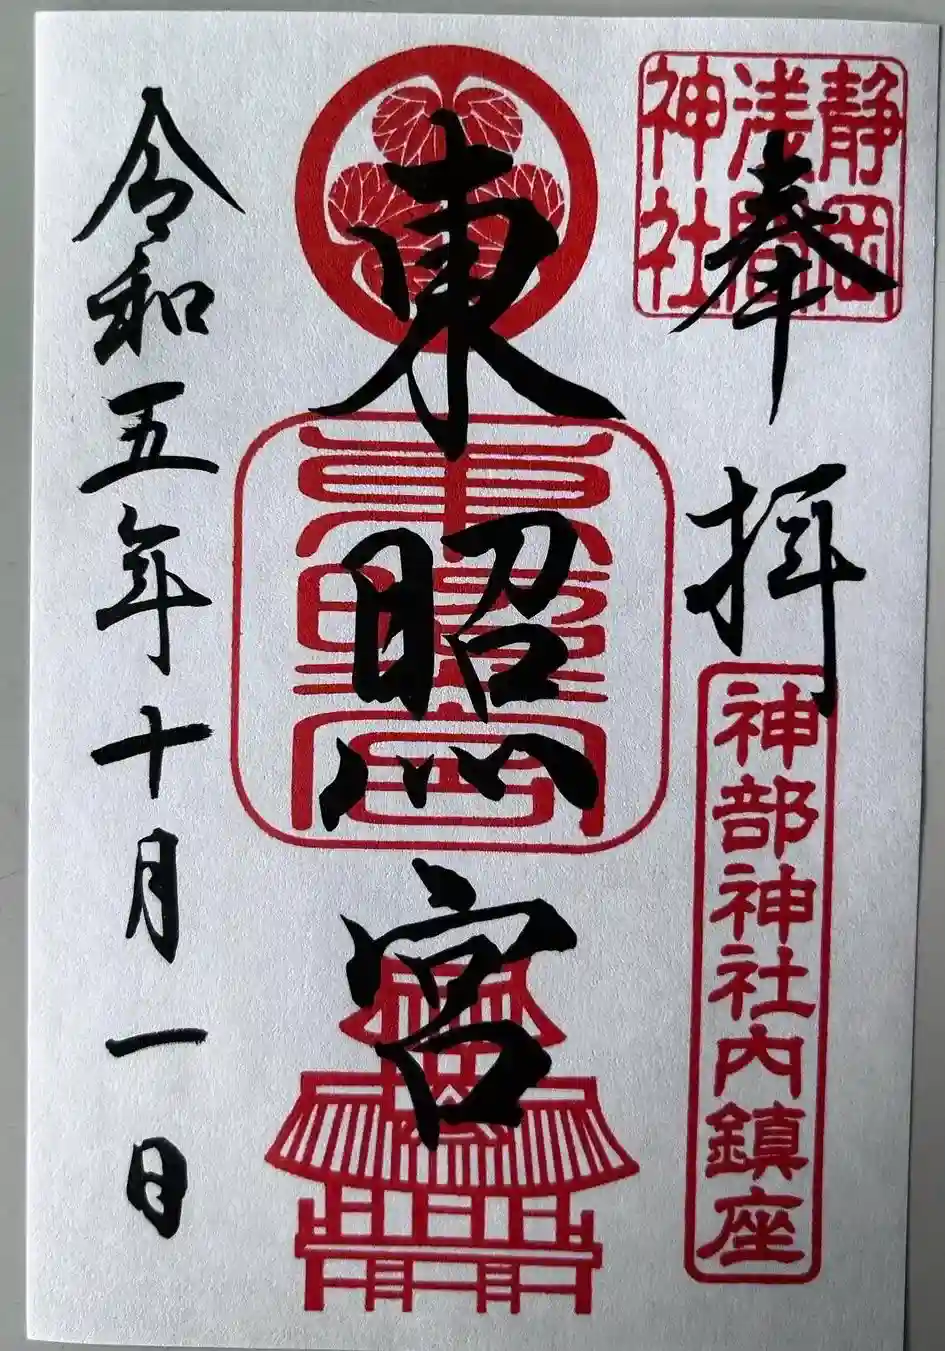 奉拝
静岡
浅間
神社
神部神社内鎮座
東照宮
東照宮
令和五年十月一日